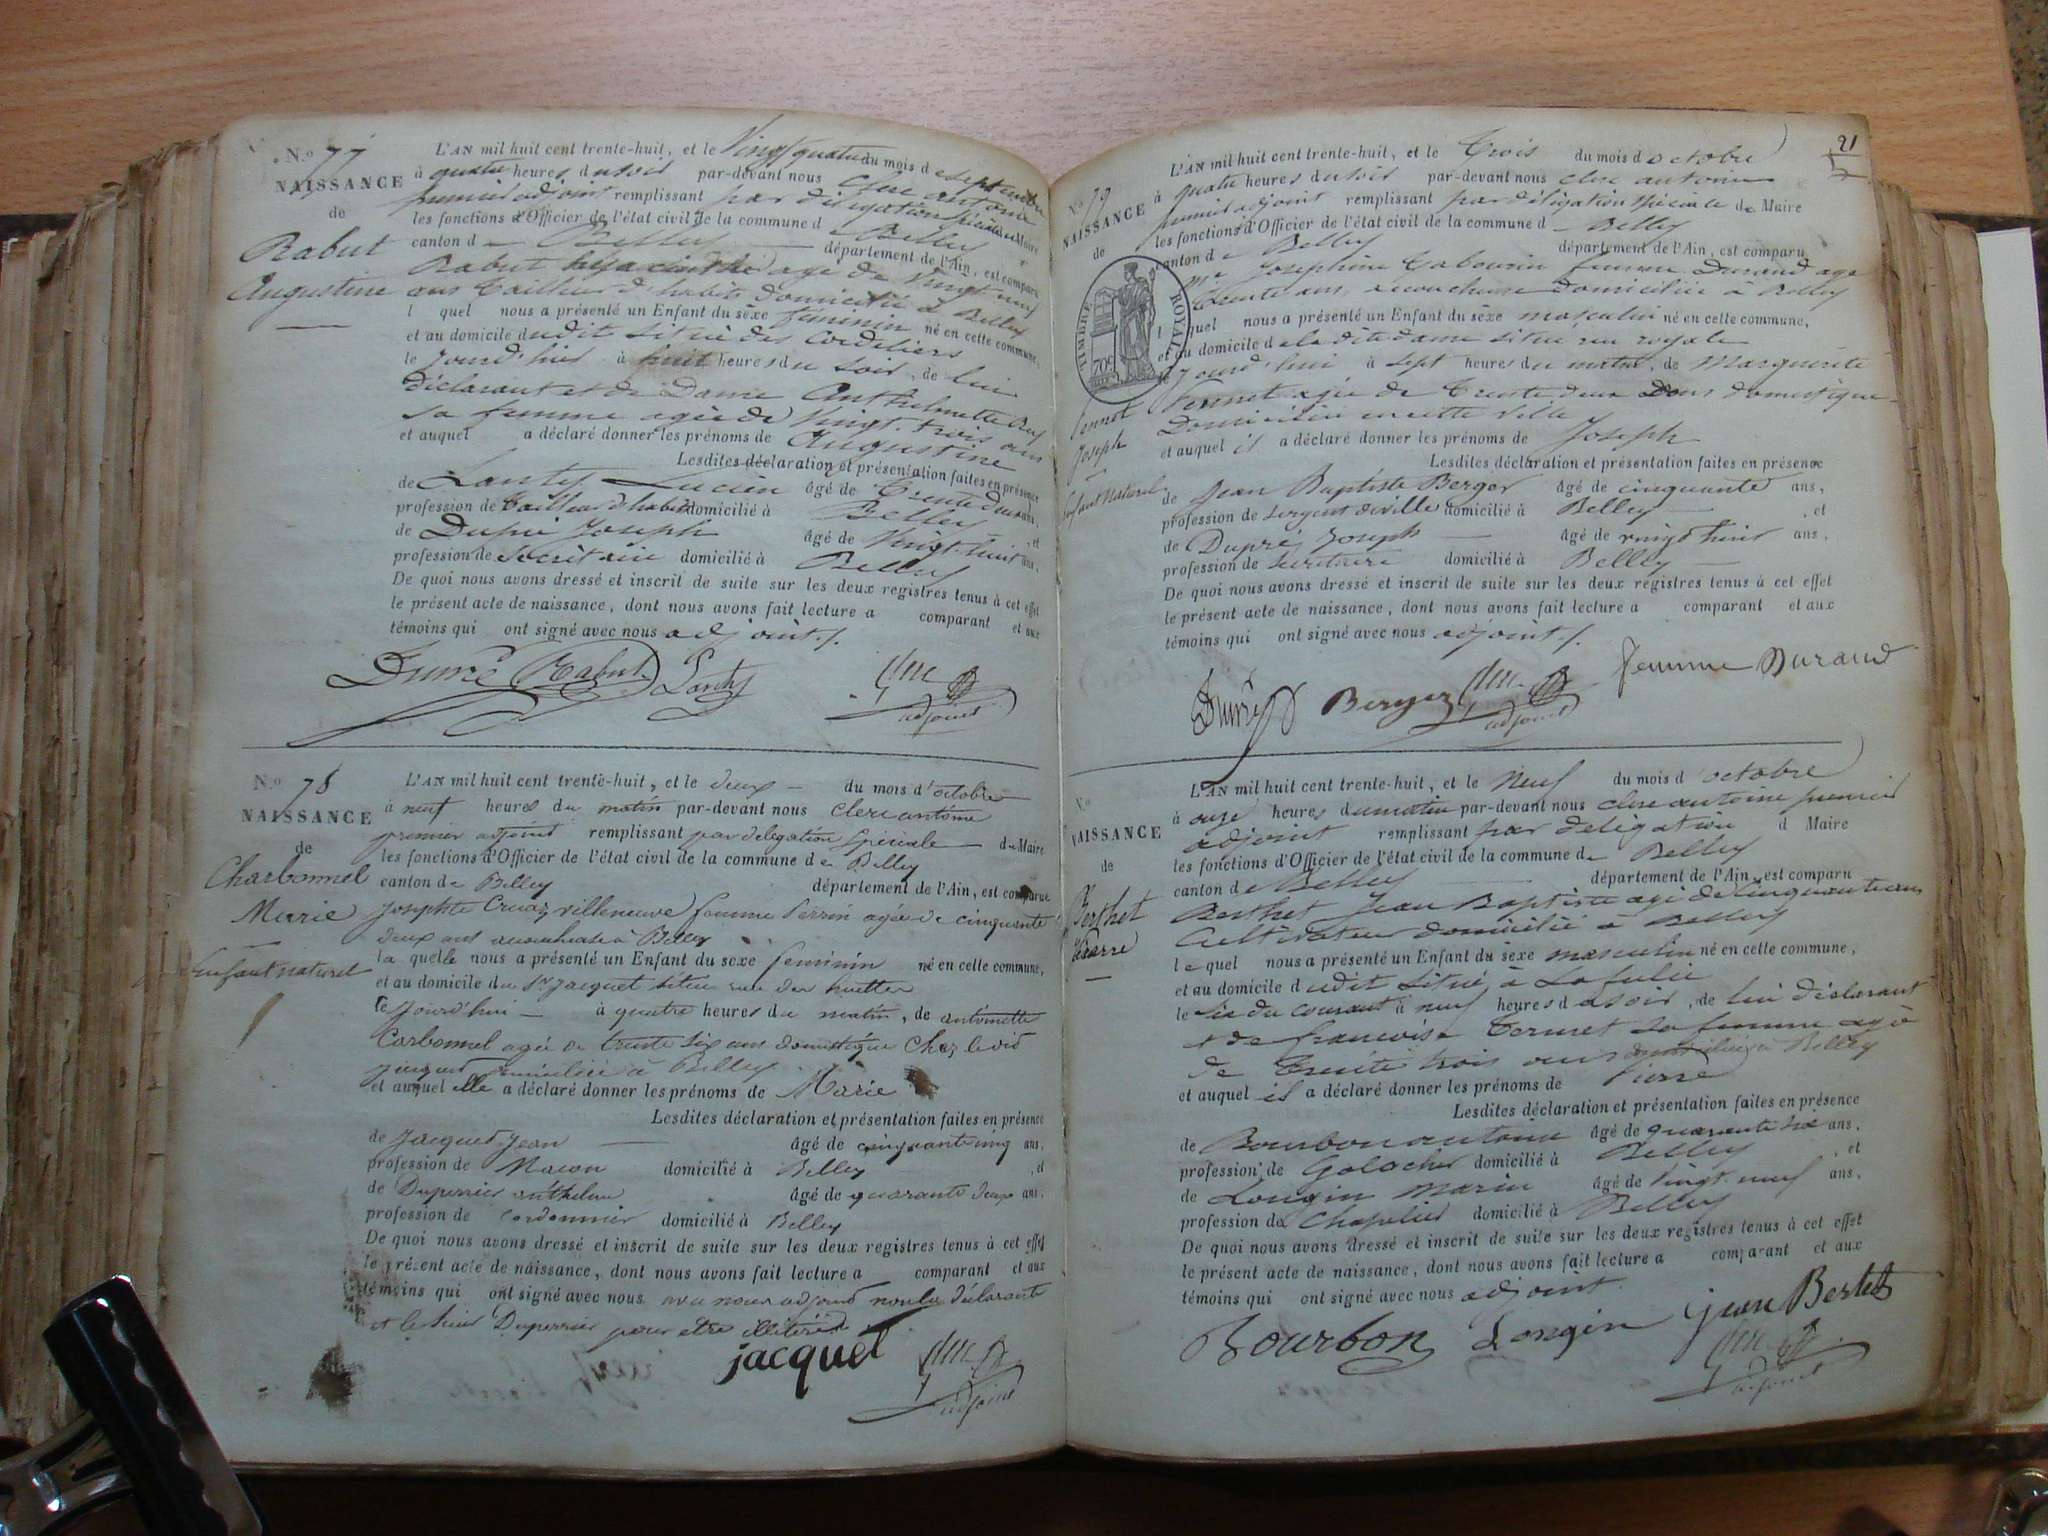 N.º 77
NAISSANCE
de
Rabut
Augustine
L'AN mil huit cent trente-huit, et le Vingt quatre du mois de septembre
à quatre heures du soir par-devant nous Clerc antoine
premier adjoint remplissant par délégation spéciale du Maire
les fonctions d'Officier de l'état civil de la commune de Belley
canton de Belley département de l'Ain, est comparu
Rabut hyacinthe agé de Vingt neuf
ans tailleur d'habits domicilié à Belley
lequel nous a présenté un Enfant du sexe féminin né en cette commune,
et au domicile dudit situé des Cordeliers
le jourd'hui à huit heures du soir, de lui
déclarant et de Dame Anthelmette
sa femme agée de Vingt trois ans
et auquel a déclaré donner les prénoms de Augustine
Lesdites déclaration et présentation faites en présence
de Lanty Lucien âgé de trente deux ans,
profession de tailleur d'habits domicilié à Belley, et
de Dupré Joseph âgé de Vingt-huit ans,
profession de secrétaire domicilié à Belley
De quoi nous avons dressé et inscrit de suite sur les deux registres tenus à cet effet
le présent acte de naissance, dont nous avons fait lecture a comparant et aux
témoins qui ont signé avec nous adjoint./.
Dupré Rabut Lanty Clerc
adjoint
N.º 78
NAISSANCE
de
Charbonnel
Marie
Enfant naturel
L'AN mil huit cent trente-huit, et le deux du mois d'octobre
à neuf heures du matin par-devant nous Clerc antoine
premier adjoint remplissant par delegation spéciale de Maire
les fonctions d'Officier de l'état civil de la commune de Belley
canton de Belley département de l'Ain, est comparue
Josephte Cruaz villeneuve femme Perrin agée de cinquante
deux ans accoucheuse à Belley
laquelle nous a présenté un Enfant du sexe feminin né en cette commune,
et au domicile du Sr. Jacquet situé rue des
le jourd'hui à quatre heures du matin, de antoinette
Carbonnel agée de trente six ans domestique chez le dit
jacquet domiciliée à Belley
et auquel elle a déclaré donner les prénoms de Marie
Lesdites déclaration et présentation faites en présence
de Jacquet Jean âgé de cinquante cinq ans,
profession de Macon domicilié à Belley, et
de Duperrier anthelme âgé de quarante deux ans,
profession de cordonnier domicilié à Belley
De quoi nous avons dressé et inscrit de suite sur les deux registres tenus à cet effet
le présent acte de naissance, dont nous avons fait lecture a comparant et aux
témoins qui ont signé avec nous avec nous adjoint non la déclarante
et le sieur Duperrier pour etre illiteré
jacquet Clerc
adjoint
21
N.º 79
NAISSANCE
de
TIMBRE ROYAL
70c
Vennet
Joseph
Enfant Naturel
L'AN mil huit cent trente-huit, et le trois du mois d octobre
à quatre heures du soir par-devant nous clerc antoine
premier adjoint remplissant par délégation spéciale de Maire
les fonctions d'Officier de l'état civil de la commune d Belley
canton de Belley département de l'Ain, est comparu
Me Josephine femme Durand age
trente ans accoucheuse domiciliée à Belley
lquel nous a présenté un Enfant du sexe masculin né en cette commune,
et au domicile de la dite dame situé rue royale
le jourd'hui à sept heures du matin, de Marguerite
Vennet agée de trente deux ans domestique
Domiciliée en cette ville
et auquel il a déclaré donner les prénoms de Joseph
Lesdites déclaration et présentation faites en présence
de Jean Baptiste Berger âgé de cinquante ans,
profession de sergent de ville domicilié à Belley, et
de Dupré Joseph âgé de vingt huit ans,
profession de secrétaire domicilié à Belley
De quoi nous avons dressé et inscrit de suite sur les deux registres tenus à cet effet
le présent acte de naissance, dont nous avons fait lecture a comparant et aux
témoins qui ont signé avec nous adjoint./.
Dupré Berger Clerc femme Durand
adjoint
N.º
NAISSANCE
de
Berthet
Pierre
L'AN mil huit cent trente-huit, et le Neuf du mois d octobre
à onze heures du matin par-devant nous clerc antoine premier
adjoint remplissant par délégation d Maire
les fonctions d'Officier de l'état civil de la commune de Belley
canton de Belley département de l'Ain, est comparu
Berthet Jean Baptiste agé de cinquante ans
Cultivateur domicilié à Belley
lequel nous a présenté un Enfant du sexe masculin né en cette commune,
et au domicile dudit situé à
le six du courant à neuf heures du soir, de lui déclarant
et de francoise sa femme agée
de trente trois ans domiciliée à Belley
et auquel il a déclaré donner les prénoms de Pierre
Lesdites déclaration et présentation faites en présence
de Bourbon antoine âgé de quarante six ans,
profession de Galocher domicilié à Belley, et
de Longin marin âgé de vingt neuf ans,
profession de Chapelier domicilié à Belley
De quoi nous avons dressé et inscrit de suite sur les deux registres tenus à cet effet
le présent acte de naissance, dont nous avons fait lecture a comparant et aux
témoins qui ont signé avec nous adjoint.
Bourbon Longin jean Bertet
Clerc
adjoint